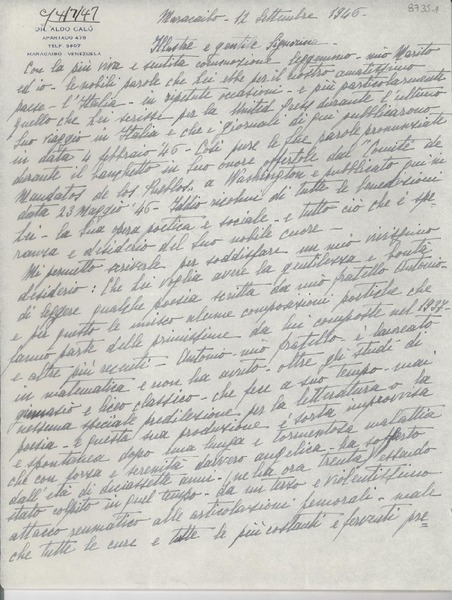 C/4/7/47
8735.1
DR. ALDO CALÒ
APARTADO 478
TELF. 9407
MARACAIBO - VENEZUELA
Maracaibo - 12 Settembre 1946 -
Illustre e gentile Signorina -
Con la più viva e sentita commozione leggemmo - mio Marito
ed io - le nobili parole che Lei ebbe per il nostro amatissimo
paese - l'Italia - in ripetute occasioni - e più particolarmente
quello che Lei scrisse per la United Press durante l'ultimo
Suo viaggio in Italia e che i giornali di qui pubblicarono
in data 4 febbraio '46 - Così pure le Sue parole pronunziate
durante il banchetto in Suo onore offertole dal "Comité de
Mandatos de los Pueblos" a Washington e pubblicato qui in
data 23 Maggio '46 - Iddio ricolmi di tutte le benedizioni
Lei - la Sua opera poetica e sociale - e tutto ciò che è spe-
ranza e desiderio del Suo nobile cuore -
Mi permetto scriverle per soddisfare un mio vivissimo
desiderio: Che Lei voglia avere la gentilezza e bontà
di leggere qualche poesia scritta da mio fratello Antonio -
e per questo le unisco alcune composizioni poetiche che
fanno parte delle primissime da lui composte nel 1934 -
e altre più recenti - Antonio - mio fratello - è laureato
in matematica e non ha avuto - oltre gli studi di
ginnasio e liceo classico - che fece a suo tempo - mai
nessuna speciale predilezione per la letteratura o la
poesia - e questa sua produzione è sorta improvvisa
e spontanea dopo una lunga e tormentosa malattia
che con forza e serenità davvero angelica - ha sofferto
dall'età di diciassette anni - (ne ha ora trenta) essendo
stato colpito in quel tempo - da un
e violentissimo
attacco reumatico alle articolazioni femorali - male
che tutte le cure e tutte le più costanti e ferventi pre-